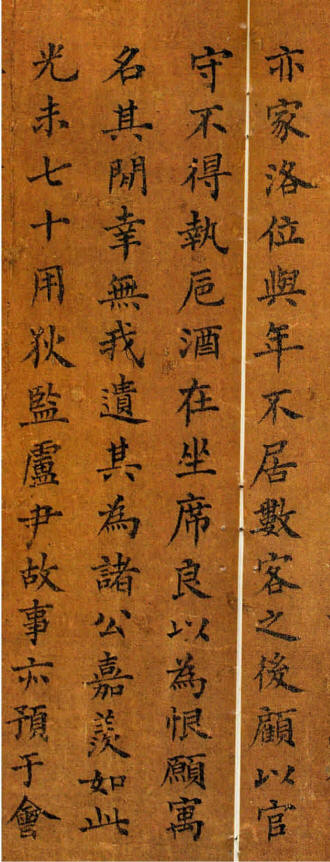 亦家洛位與年不居數客之後顧以官
守不得執巵酒在坐席良以為恨願寓
名其閒幸無我遺其為諸公嘉羨如此
光未七十用狄監盧尹故事亦預于會